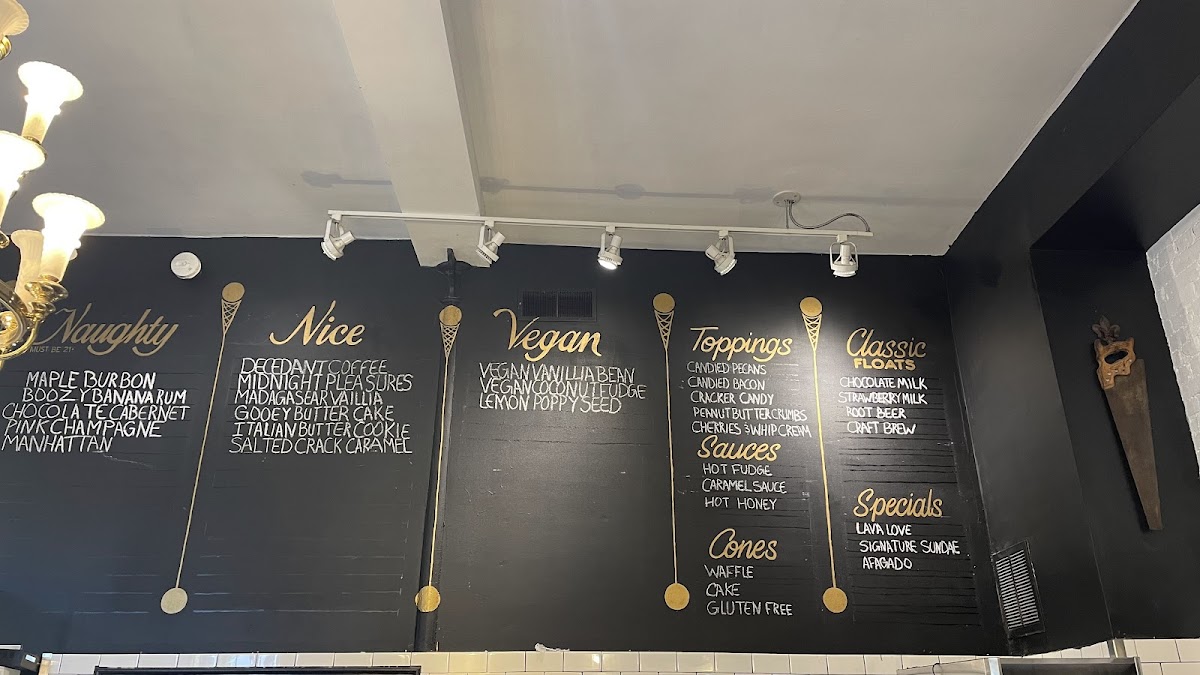 Naughty
MUST BE 21+
MAPLE BURBON
BOOZY BANANA RUM
CHOCOLATE CABERNET
PINK CHAMPAGNE
MANHATTAN
Nice
DECEDANT COFFEE
MIDNIGHT PLEASURES
MADAGASEAR VAILLIA
GOOEY BUTTER CAKE
ITALIAN BUTTER COOKIE
SALTED CRACK CARAMEL
Vegan
VEGAN VANILLIA BEAN
VEGAN COCONUT FUDGE
LEMON POPPY SEED
Toppings
CANDIED PECANS
CANDIED BACON
CRACKER CANDY
PEANUT BUTTER CRUMBS
CHERRIES & WHIP CREAM
Sauces
HOT FUDGE
CARAMEL SAUCE
HOT HONEY
Cones
WAFFLE
CAKE
GLUTEN FREE
Classic
FLOATS
CHOCOLATE MILK
STRAWBERRY MILK
ROOT BEER
CRAFT BREW
Specials
LAVA LOVE
SIGNATURE SUNDAE
AFAGADO